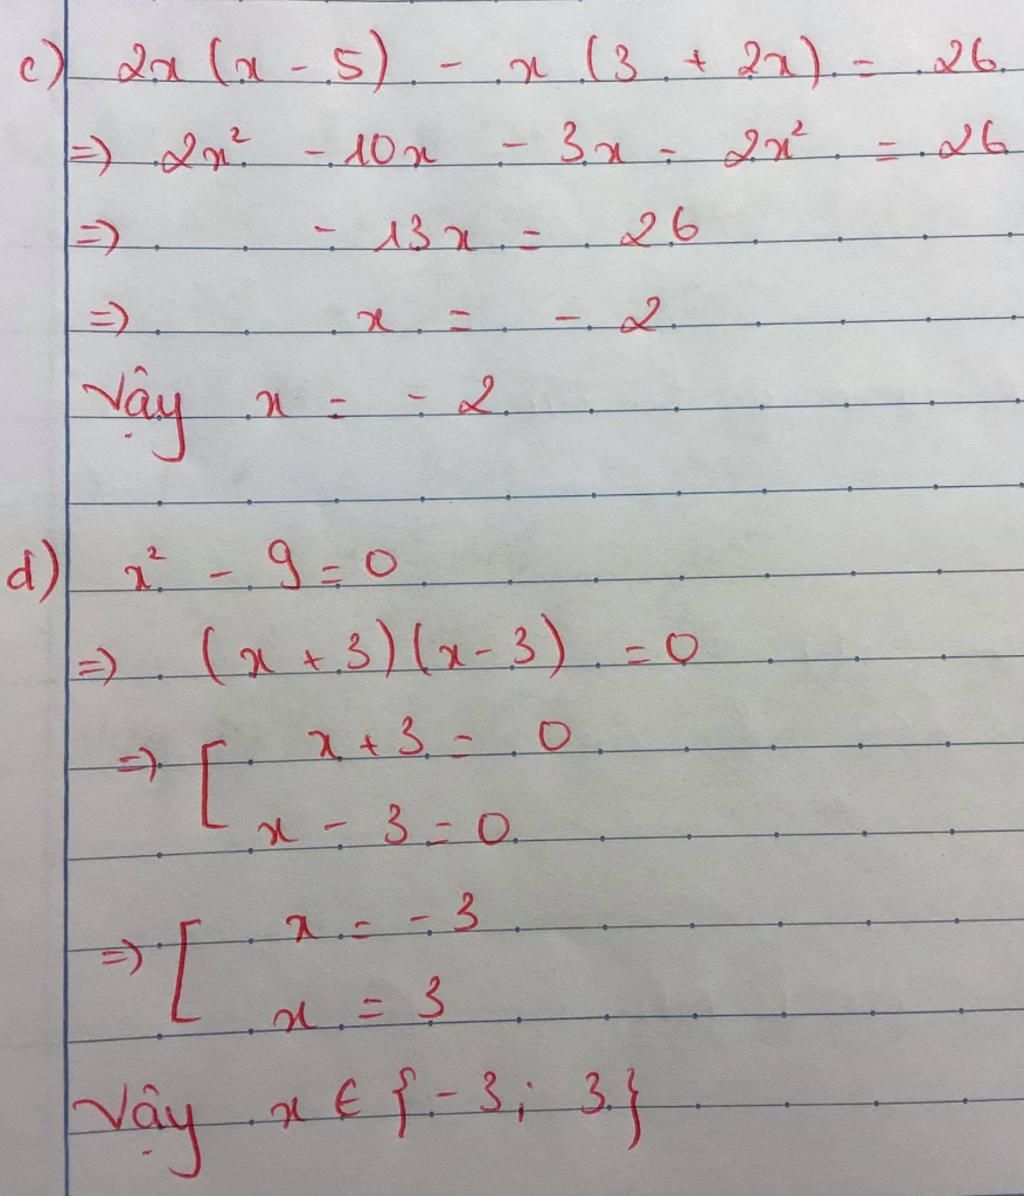 c) 2x (x - 5) - x (3 + 2x) = 26
=> 2x² - 10x - 3x - 2x² = 26
=> - 13x = 26
=> x = - 2
Vậy x = - 2
d) x² - 9 = 0
=> (x + 3)(x - 3) = 0
=> [ x + 3 = 0
x - 3 = 0
=> [ x = - 3
x = 3
Vậy x ∈ {- 3; 3}